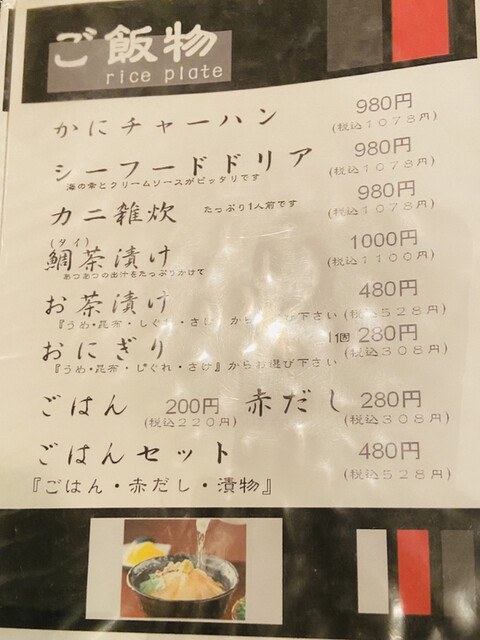 ご飯物
rice plate
かにチャーハン 980円
(税込1078円)
シーフードドリア 980円
海の幸とクリームソースがピッタリです (税込1078円)
カニ雑炊 たっぷり1人前です 980円
(税込1078円)
(タイ)
鯛茶漬け 1000円
あつあつの出汁をたっぷりかけて (税込1100円)
お茶漬け 480円
『うめ・昆布・しぐれ・さけ』からお選び下さい (税込528円)
おにぎり 1個 280円
『うめ・昆布・しぐれ・さけ』からお選び下さい (税込308円)
ごはん 200円 赤だし 280円
(税込220円) (税込308円)
ごはんセット 480円
(税込528円)
『ごはん・赤だし・漬物』